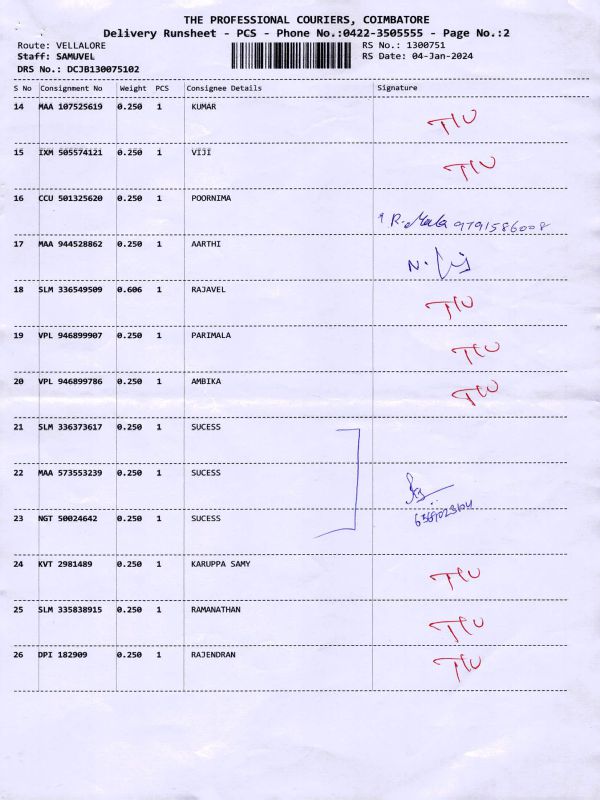 THE PROFESSIONAL COURIERS, COIMBATORE
Delivery Runsheet - PCS - Phone No.:0422-3505555 - Page No.:2
Route: VELLALORE
RS No.: 1300751
Staff: SAMUVEL
RS Date: 04-Jan-2024
DRS No.: DCJB130075102
S No Consignment No Weight PCS Consignee Details Signature
14 MAA 107525619 0.250 1 KUMAR
15 IXM 505574121 0.250 1 VIJI
16 CCU 501325620 0.250 1 POORNIMA
R. Mala 9791586008
17 MAA 944528862 0.250 1 AARTHI
18 SLM 336549509 0.606 1 RAJAVEL
19 VPL 946899907 0.250 1 PARIMALA
20 VPL 946899786 0.250 1 AMBIKA
21 SLM 336373617 0.250 1 SUCESS
22 MAA 573553239 0.250 1 SUCESS
23 NGT 50024642 0.250 1 SUCESS
24 KVT 2981489 0.250 1 KARUPPA SAMY
25 SLM 335838915 0.250 1 RAMANATHAN
26 DPI 182909 0.250 1 RAJENDRAN